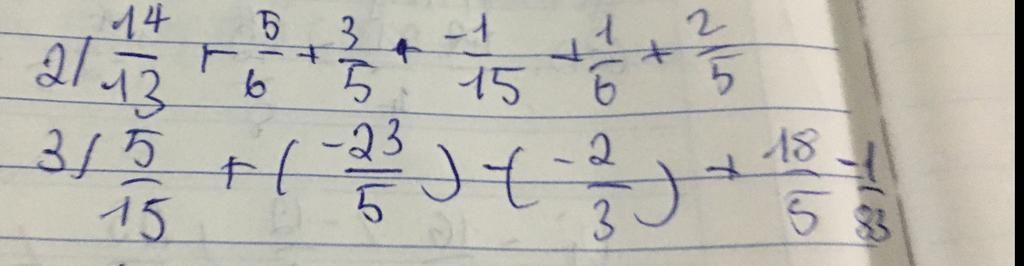 2/ 14/13 + 5/6 + 3/5 + -1/15 + 1/6 + 2/5
3/ 5/15 + (-23/5) - (-2/3) + 18/5 -1/83